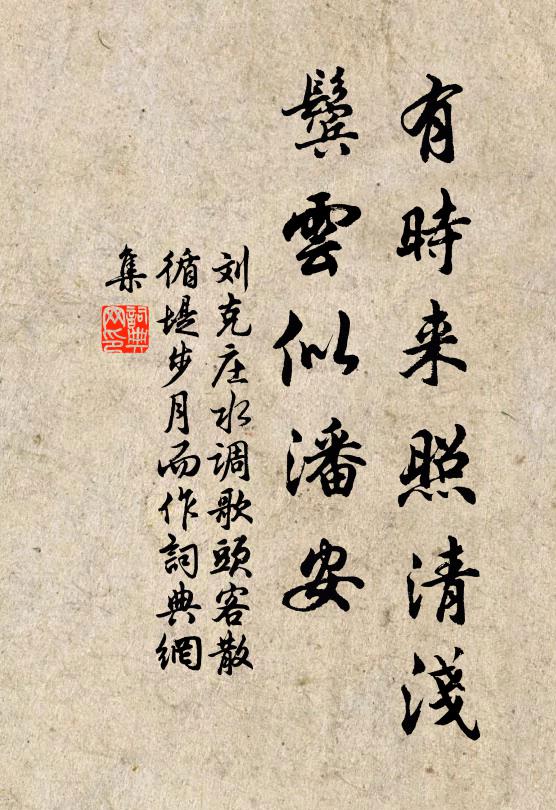 有時来照清淺
鬓雲似潘安
刘克庄水调歌頭客散
循堤步月而作詞典網
集
詞典
网印